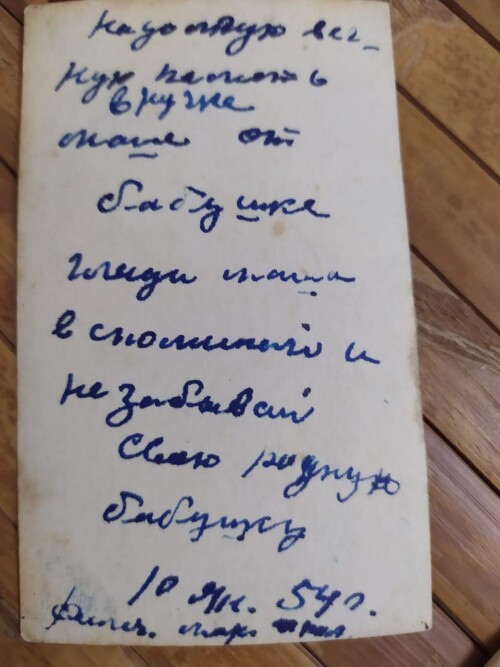 на долгую веч-
ную память
внучке
маше от
бабушке
гляди маша
вспоминай и
не забывай
свою родную
бабушку
10 ян. 54 г.